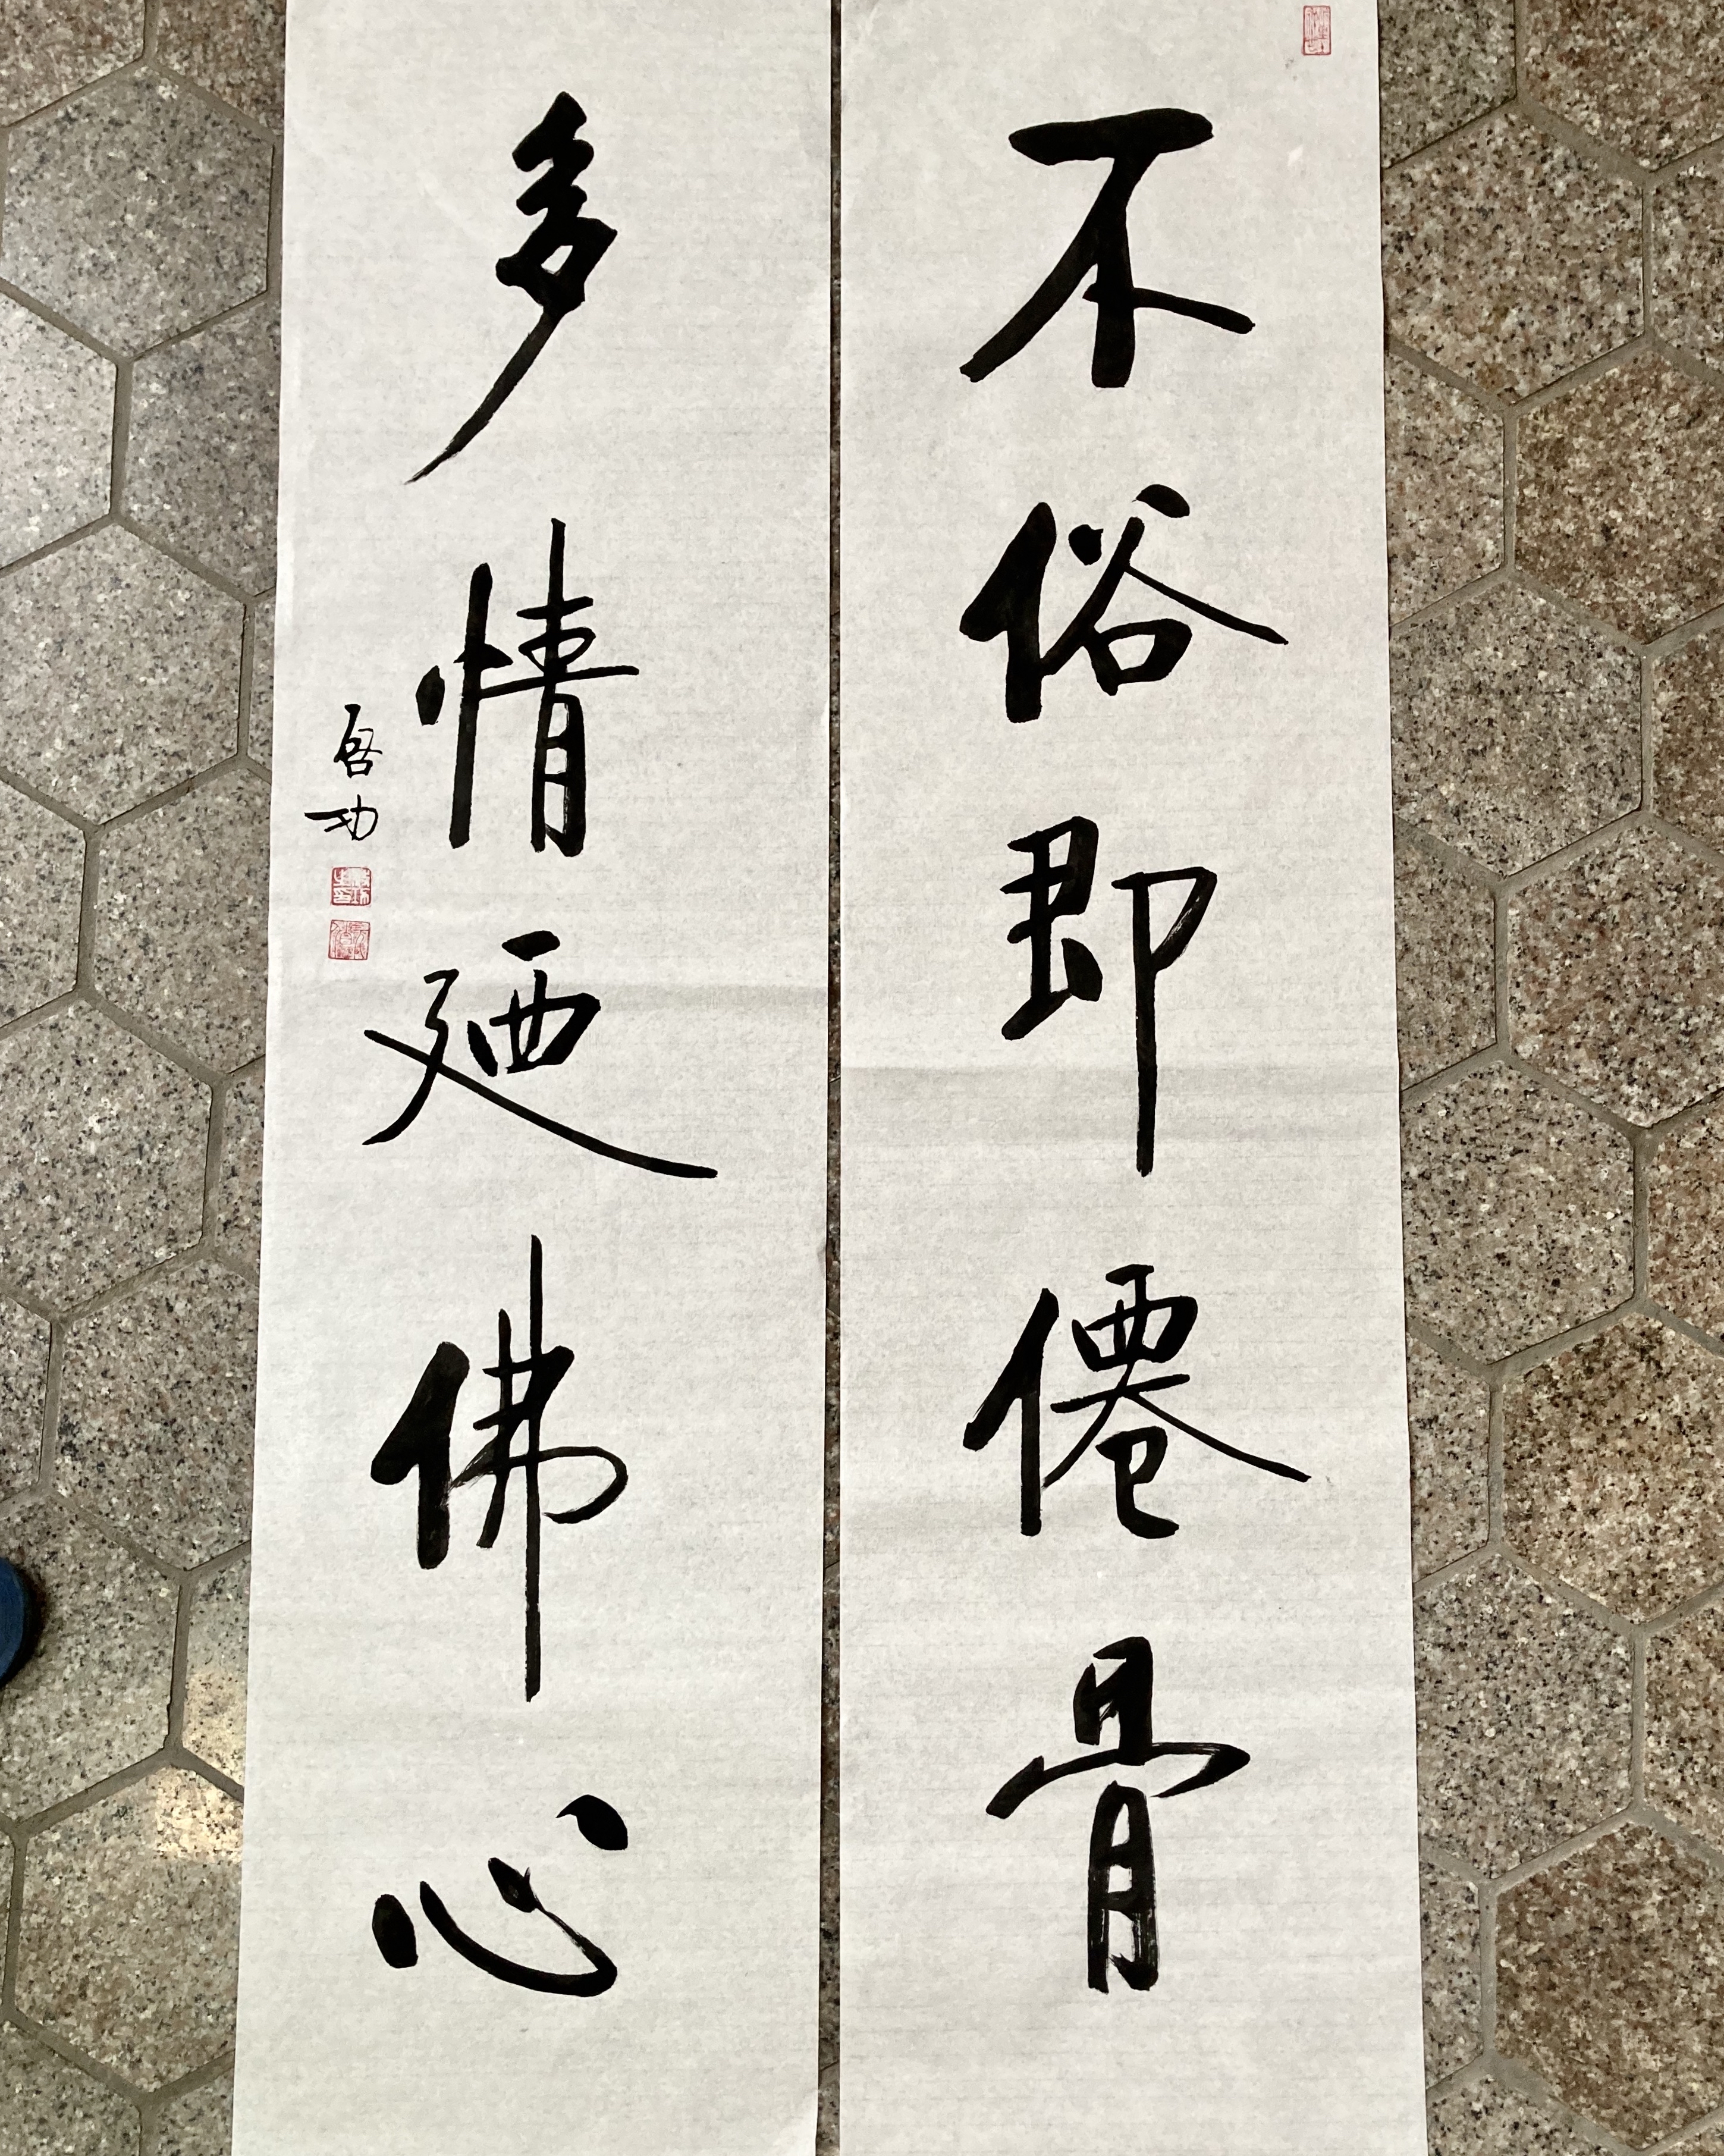 不俗即僊骨
多情廼佛心
启功